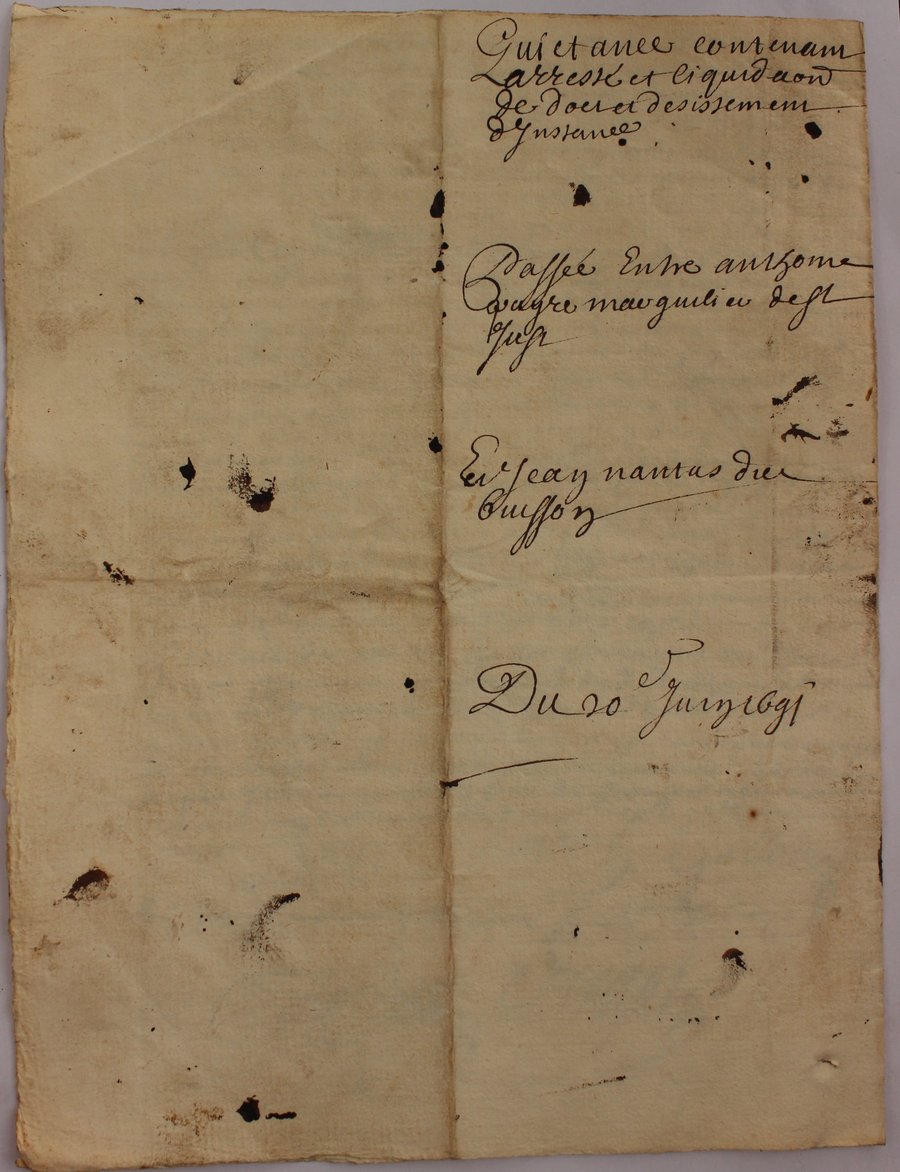 Quictance contenant
Larrest et liquidaon
de doct et desistement
d'Instance
Passée Entre anthome
marguilier de St
Just
Et Jean nantas du
buisson
Du 20e Juin 1691